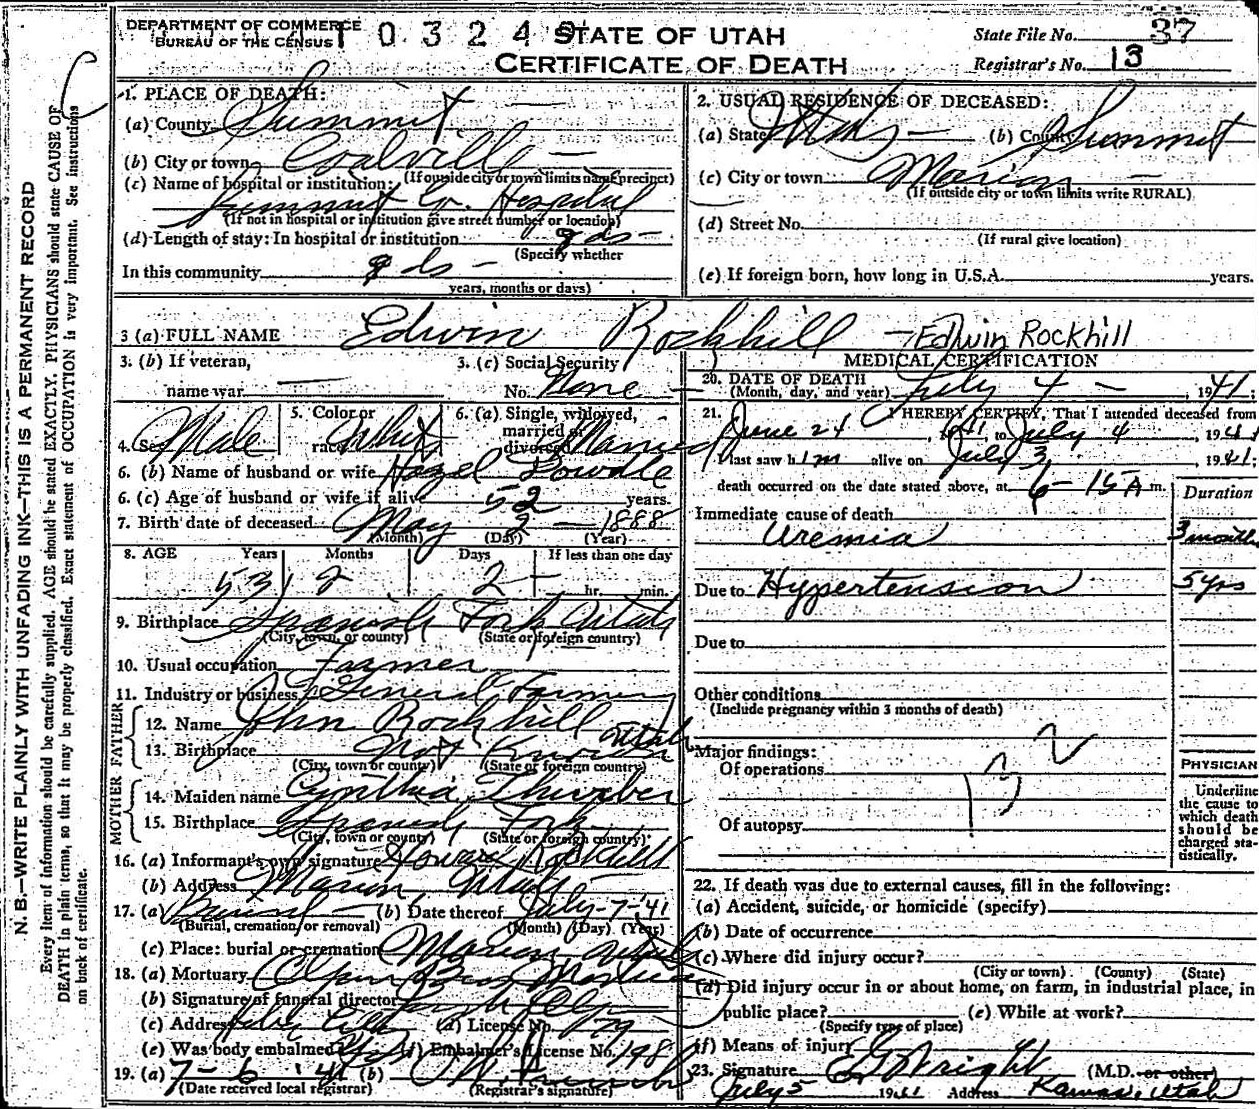 DEPARTMENT OF COMMERCE
BUREAU OF THE CENSUS
T 0 3 2 4 9
STATE OF UTAH
CERTIFICATE OF DEATH
State File No. 37
Registrar's No. 13
N. B.—WRITE PLAINLY WITH UNFADING INK—THIS IS A PERMANENT RECORD
Every item of information should be carefully supplied. AGE should be stated EXACTLY. PHYSICIANS should state CAUSE OF
DEATH in plain terms, so that it may be properly classified. Exact statement of OCCUPATION is very important. See instructions
on back of certificate.
1. PLACE OF DEATH:
(a) County Summit
(b) City or town Coalville
(If outside city or town limits name precinct)
(c) Name of hospital or institution:
Summit Co. Hospital
(If not in hospital or institution give street number or location)
(d) Length of stay: In hospital or institution 9 ds
(Specify whether
In this community 9 ds
years, months or days)
2. USUAL RESIDENCE OF DECEASED:
(a) State Utah (b) County Summit
(c) City or town Marion
(If outside city or town limits write RURAL)
(d) Street No.
(If rural give location)
(e) If foreign born, how long in U.S.A. years.
3 (a) FULL NAME Edwin Rockhill - Edwin Rockhill
3. (b) If veteran,
name war
3. (c) Social Security
No. None
4. Sex Male
5. Color or
race White
6. (a) Single, widowed,
married or
divorced Married
6. (b) Name of husband or wife Hazel
6. (c) Age of husband or wife if alive 52 years.
7. Birth date of deceased May 2 1888
(Month) (Day) (Year)
8. AGE Years Months Days If less than one day
53 2 2 hr. min.
9. Birthplace Spanish Fork Utah
(City, town, or county) (State or foreign country)
10. Usual occupation Farmer
11. Industry or business General Farming
FATHER
12. Name John Rockhill
13. Birthplace Not Known Utah
(City, town or county) (State or foreign country)
MOTHER
14. Maiden name Cynthia Thurber
15. Birthplace Spanish Fork
(City, town or county) (State or foreign country)
16. (a) Informant's own signature Rockhill
(b) Address Marion Utah
17. (a) Burial (b) Date thereof July-7-'41
(Burial, cremation, or removal) (Month) (Day) (Year)
(c) Place: burial or cremation Marion Utah
18. (a) Mortuary Olpin Bros Mortuary
(b) Signature of funeral director
(c) Address (d) License No.
(e) Was body embalmed? Yes (f) Embalmer's License No. 198
19. (a) 7-6 '41 (b)
(Date received local registrar) (Registrar's signature)
MEDICAL CERTIFICATION
20. DATE OF DEATH
(Month, day, and year) July 4 - , 1941.
21. I HEREBY CERTIFY, That I attended deceased from
June 24 , 1941, to July 4 , 1941
I last saw him alive on July 3 , 1941.
death occurred on the date stated above, at 6-15 A m.
Duration
Immediate cause of death
Uremia 3 months
Due to Hypertension 5 yrs
Due to
Other conditions
(Include pregnancy within 3 months of death)
Major findings:
Of operations
132
Of autopsy
PHYSICIAN
Underline
the cause to
which death
should be
charged sta-
tistically.
22. If death was due to external causes, fill in the following:
(a) Accident, suicide, or homicide (specify)
(b) Date of occurrence
(c) Where did injury occur?
(City or town) (County) (State)
(d) Did injury occur in or about home, on farm, in industrial place, in
public place? (e) While at work?
(Specify type of place)
(f) Means of injury
23. Signature E G Wright (M.D. or other)
July 5 1941 Address Kamas, Utah